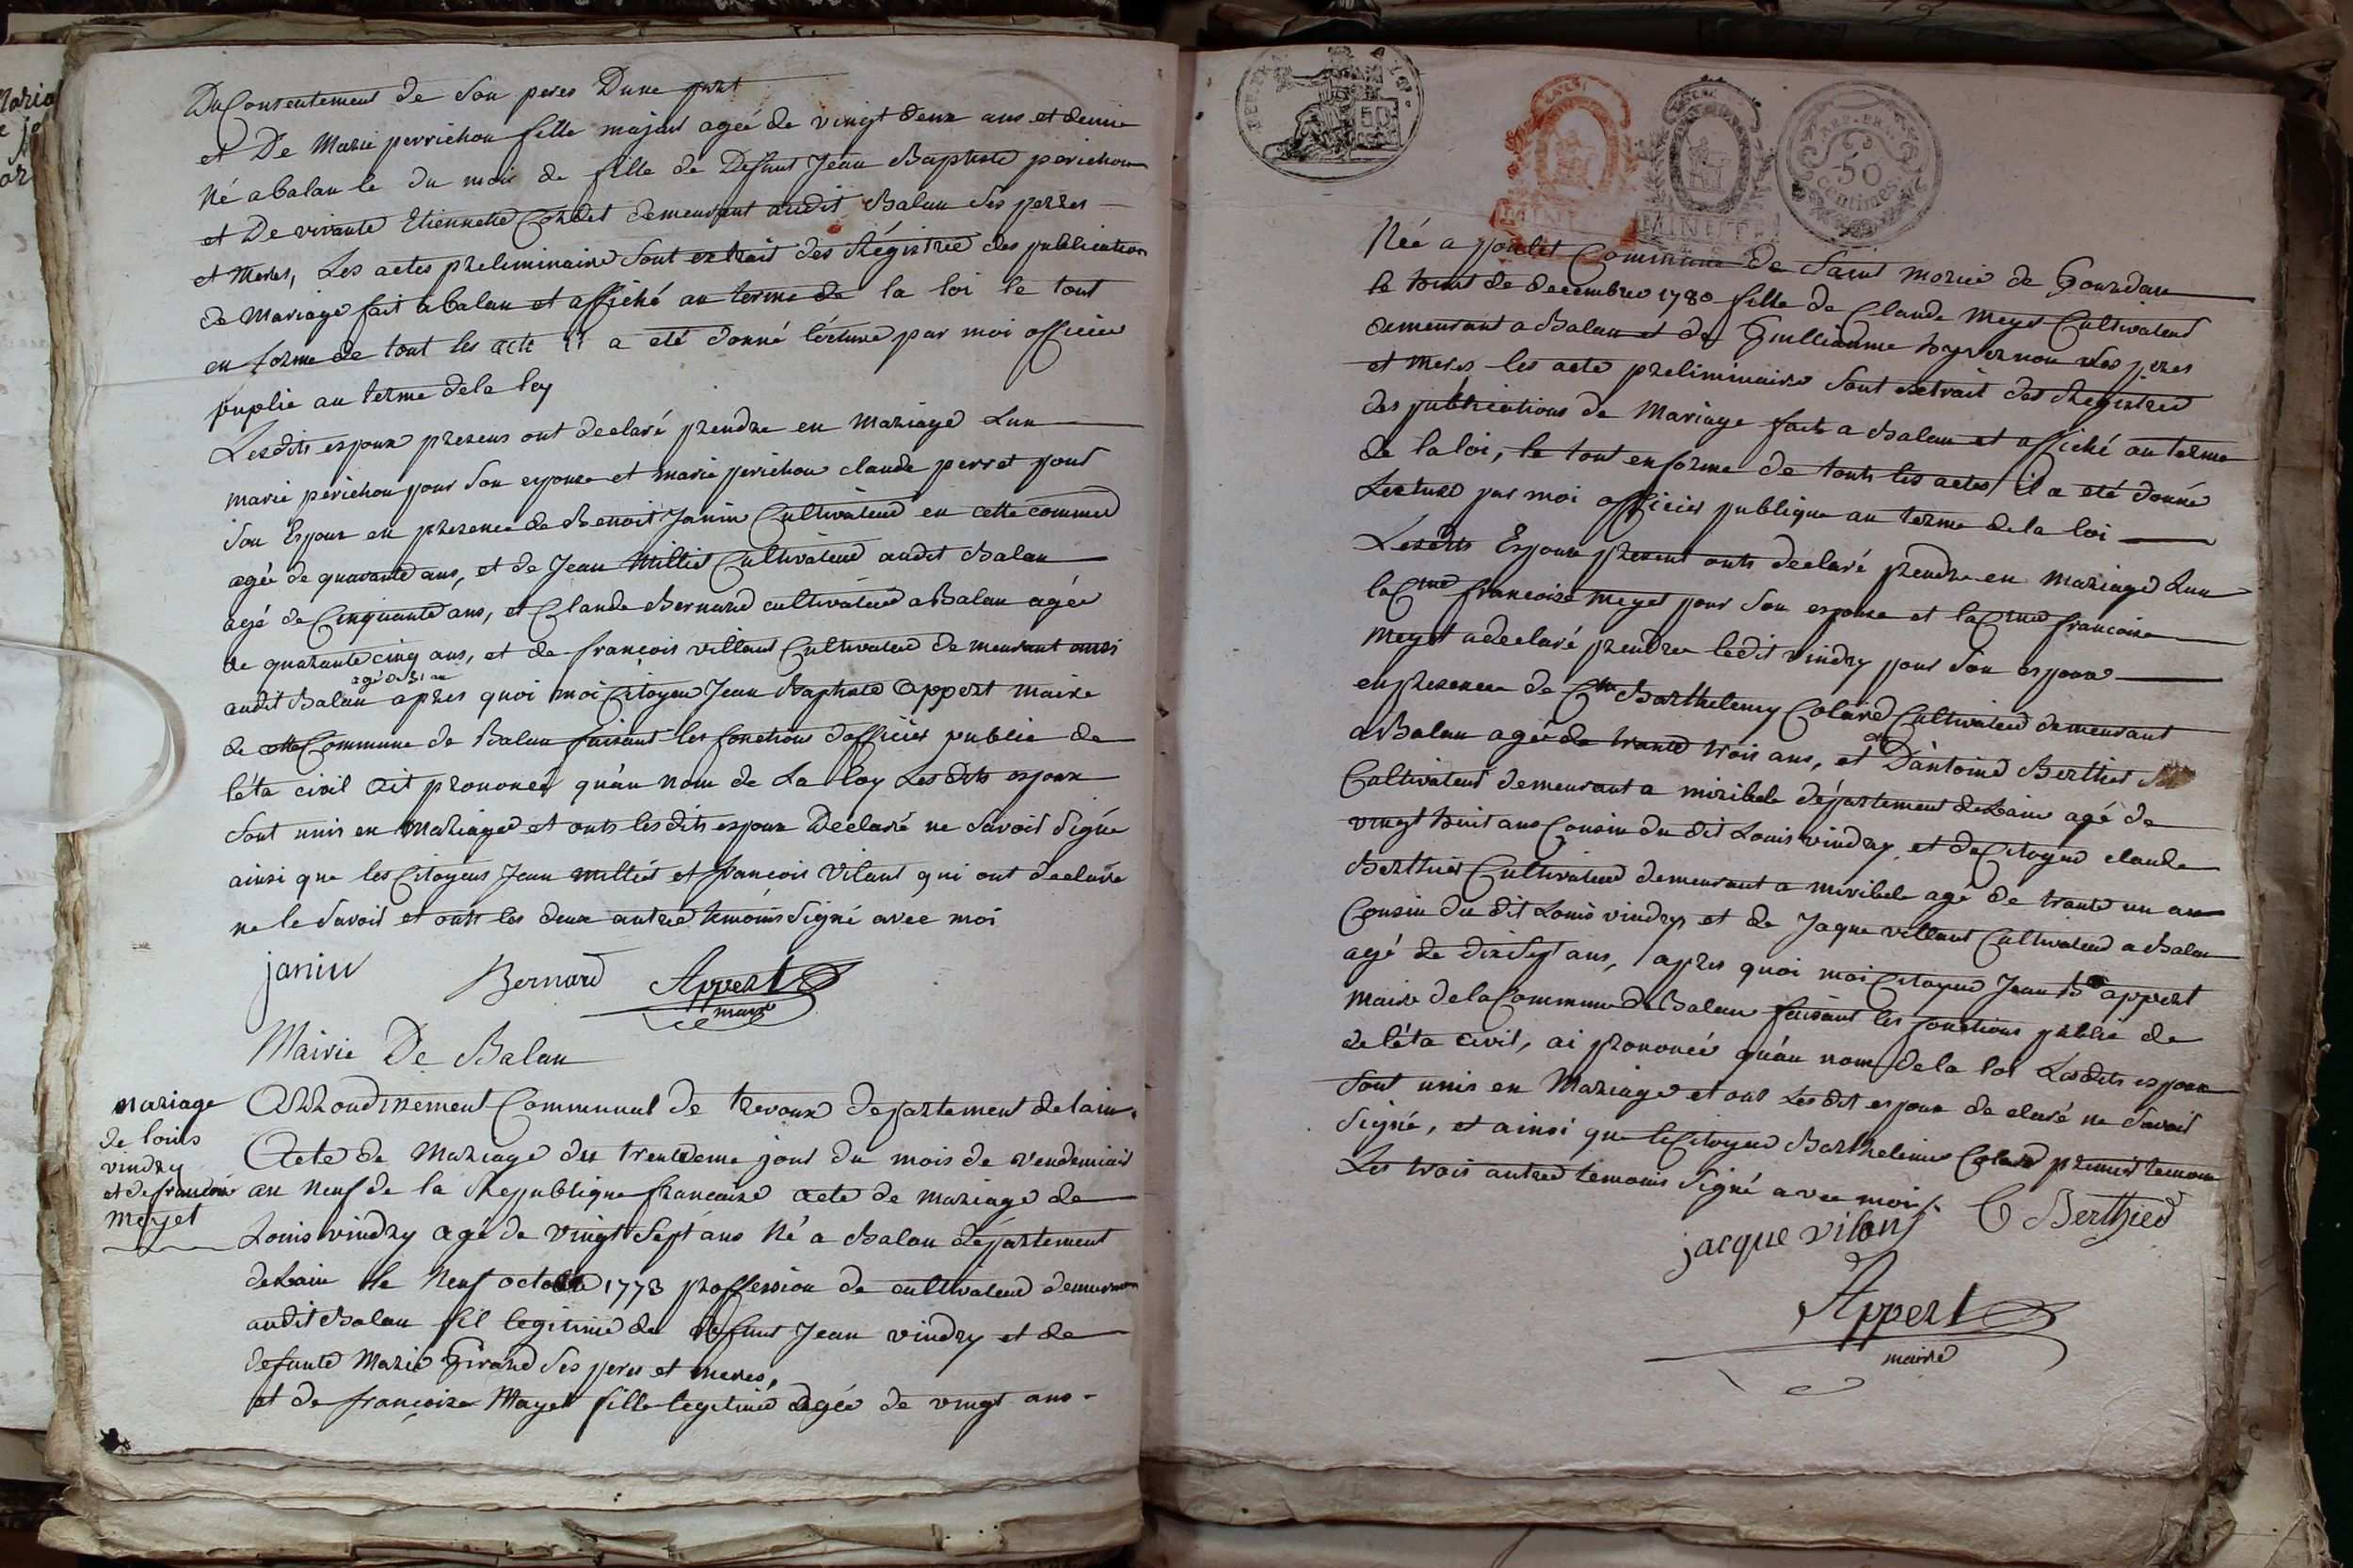 Du Consentement de son peres Dune part
et De Marie perrichon fille majeur agée de vingt deux ans et demie
Né a balan le du mois de fille de Defunt Jean Baptiste perichon
et De vivante Etiennette Cordet demeurant audit Balan ses peres
et meres, Les actes preliminaire sont extrait des Régistree des publication
de Mariage fait a balan et affiché au terme de la loi le tout
en forme de tout les acte il a eté donné lecture par moi officier
puplie au terme de la loy
Lesdits espoux presens ont declaré prendre en mariage Lun
marie perichon pour son espouse et marie perichon claude perret pour
son Espoux en presence de Benoit Janin Cultivateur en cette commun
agée de quarante ans, et de Jean Millet Cultivateur audit Balan
agé de Cinquante ans, et Claude Bernard cultivateur a Balan agée
de quarante cinq ans, et de françois villaut Cultivateur demeurant aussi
agé de 31 an
audit Balan apres quoi moi Citoyen Jean Baptiste Appert maire
de Commune de Balan faisant les fonctions d'officier public de
l'éta civil ait prononcé qu'au nom de La loy Les dits espoux
sont unis en Mariage et onts lesdits espoux Declaré ne savoir Signe
ainsi que les Citoyens Jean Millet et françois Vilaut qui ont declaré
ne le savoir et onts les deux autre temoins signé avec moi
janin Bernard Appert
maire
Mairie De Balan
mariage
de louis
vindry
et de francoise
meyet
Arrondissement Communal de trevoux departement de lain.
Acte de Mariage du trentieme jour du mois de vendemiair
an neuf de la Republique francaise acte de mariage de
Louis vindry agé de vingt sept ans Né a Balan departement
de Lain le neuf octobre 1773 proffession de cultivateur demeurant
audit Balan fil legitime de defunt Jean vindry et de
defunte Marie Girand ses peres et meres,
et de françoise Mayet fille legitime agée de vingt ans -
50
MINUTE
MINUTE
REP. FRA.
50
centimes
Née a pollet Commune de Saint moriee de Gourdan
le huit de decembre 1780 fille de Claude Meyet Cultivateur
demeurant a Balan et de Guilliaume hyvernon ses peres
et meres les acte preliminaire sont extrait des Registree
des publications de Mariage faits a Balan et affiché au terme
de la loi, le tout en forme de touts les actes il a eté donné
Lecture par moi officier publique au terme de la loi
Lesdits Espoux present onts declaré prendre en Mariage Lun
la Cme francoise meyet pour son espouse et la Cme francoise
meyet a declaré prendre ledit vindry pour son espoux
en presence de Cen Barthelemy Colard Cultivateur demeurant
a Balan agé de trante trois ans, et D'antoine Berthier
Cultivateur demeurant a miribele département de Lain agé de
vingt huit ans Cousin du dit Louis vindry, et du Citoyen claude
Berthier Cultivateur demeurant a miribele age de trante un an
Cousin du dit Louis vindry et de Jaque villaut Cultivateur a Balan
agé de dix sept ans, apres quoi moi Citoyen Jean B appert
Maire de la Commune de Balan faisant les fonctions public de
de l'éta civil, ai prononcé qu'au nom de la loi Lesdits espoux
sont unis en Mariage et ont Les dit espoux declaré ne savoir
signé, et ainsi que le Citoyen Barthelemi Colard premier temoin
Les trois autre temoins signé avec moi
jacque vilant C Berthier
Appert
maire